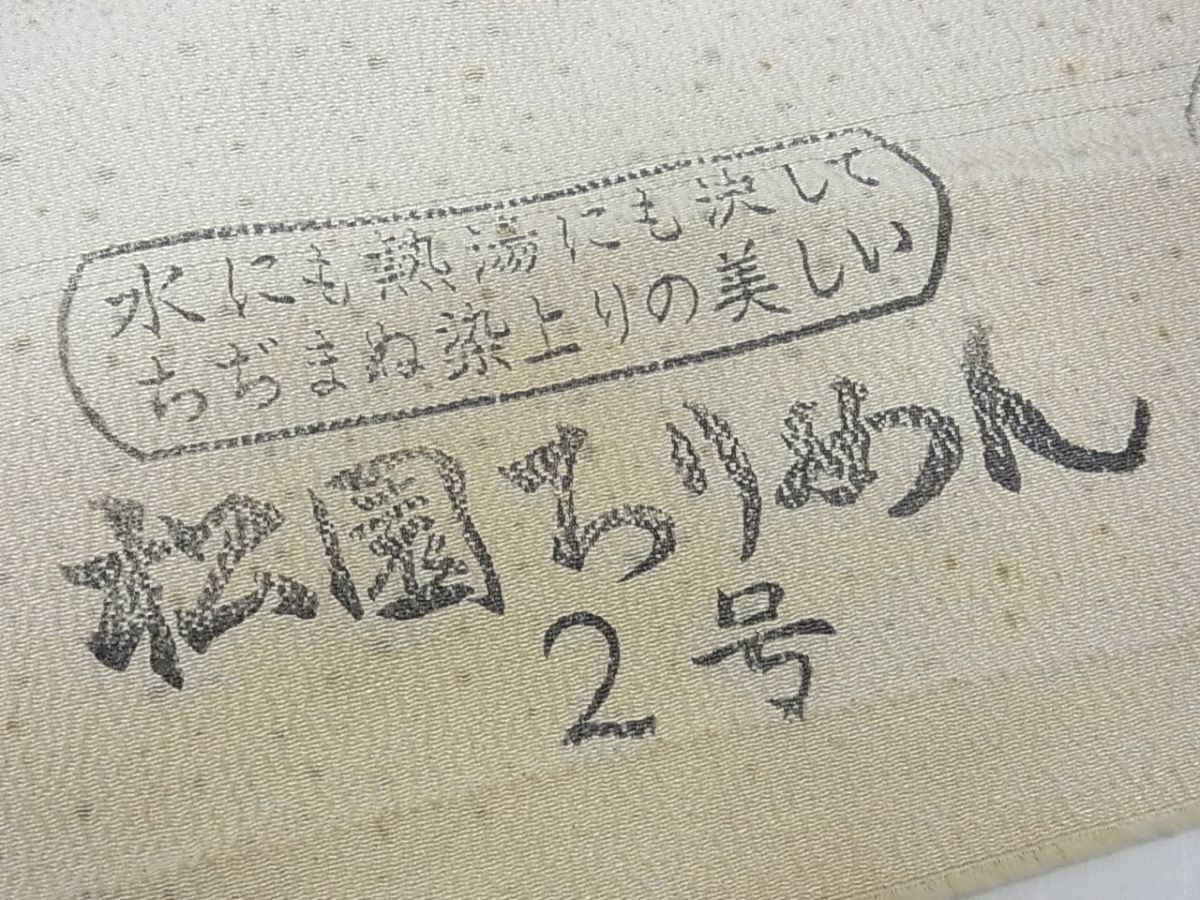 水にも熱湯にも決して
ちぢまぬ染上りの美しい
松園ちりめん
2号